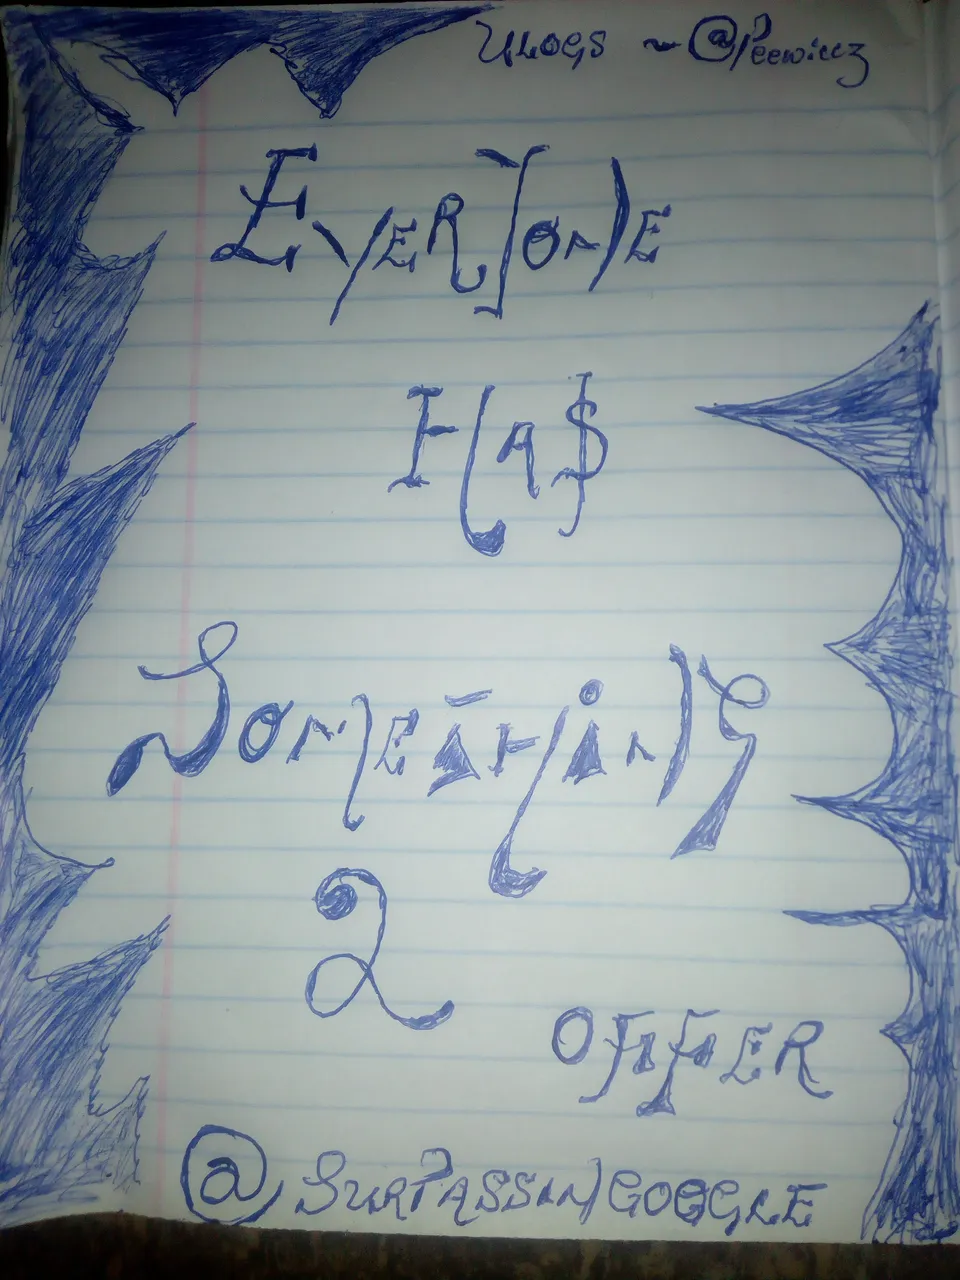 ULOGS ~ @Peewicz
EVERYONE
HA$
SOMETHING
2
OFFER
@SURPASSINGOOGLE